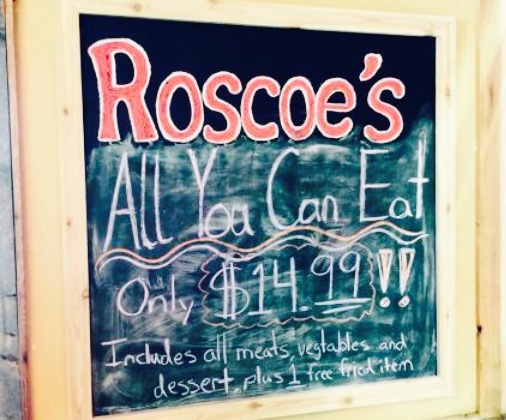 Roscoe's
All You Can Eat
Only $14.99!!
Includes all meats, vegtables and
dessert, plus 1 free fried item